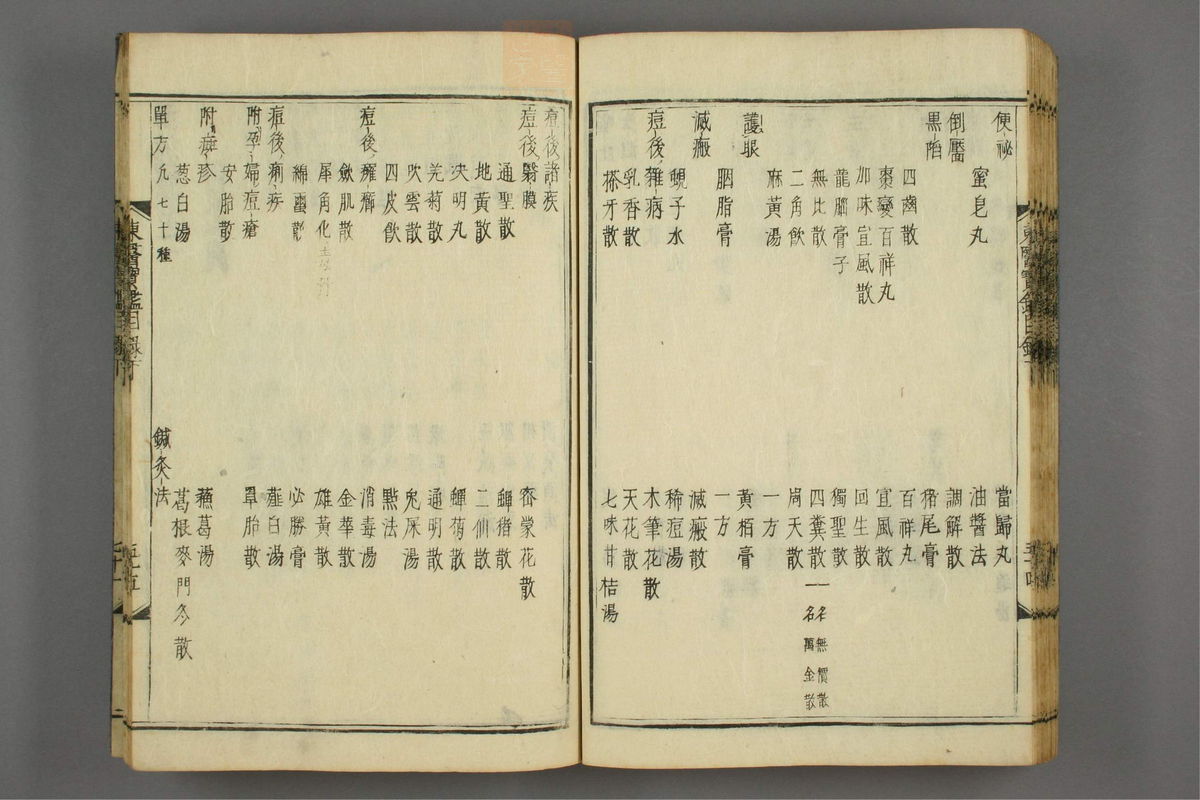 便秘 當歸丸
蜜皂丸 油醬法
倒靨 調解散
黑陷 猪尾膏
四齒散 百祥丸
棗變百祥丸 宣風散
加味宣風散 回生散
龍腦膏子 獨聖散
無比散 四糞散 一名無價散 一名萬金散
二角飲 周天散
麻黃湯 一方
護眼 黃栢膏
一方
胭脂膏
減瘢 減瘢散
蜆子水 稀痘湯
痘後雜病 木筆花散
乳香散 天花散
搽牙散 七味甘桔湯
痘後諸疾
痘後翳膜 密蒙花散
通聖散 蟬猪散
地黃散 二仙散
決明丸 蟬菊散
羌菊散 通明散
吹雲散 兔屎湯
四皮飲 點法
痘後癰癤 消毒湯
斂肌散 金華散
犀角化毒丹 雄黃散
綿繭散 必勝膏
痘後痢疾 薤白湯
附孕婦痘瘡 罩胎散
安胎散
附疹 蘇葛湯
葱白湯 葛根麥門冬散
單方凡七十種 鍼灸法
東醫寶鑑目録下